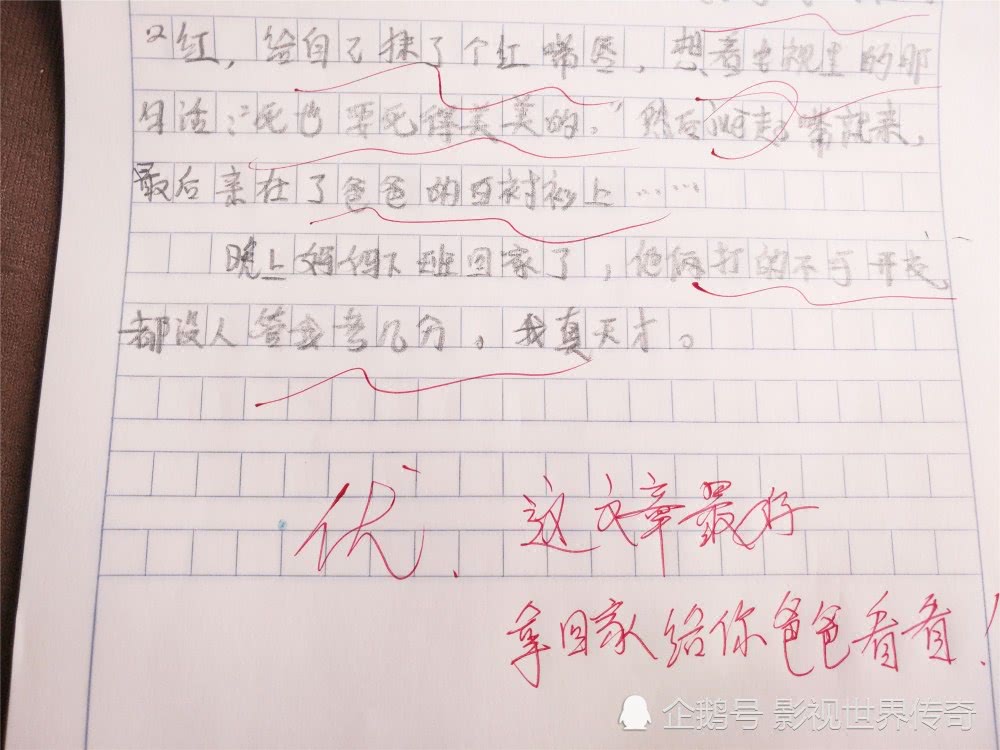 口红，给自己抹了个红嘴唇，想着电视里的那
句话："死也要死得美美的。"然后嘟起嘴起来，
最后亲在了爸爸的白衬衫上……
晚上妈妈下班回家了，他俩打的不可开交
都没人管我考几分。我真天才。
优、这文章最好
拿回家给你爸爸看看！
企鹅号 影视世界传奇